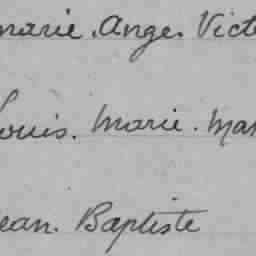 marie. Ange. Vict
Louis. Marie. Mar
ean. Baptiste